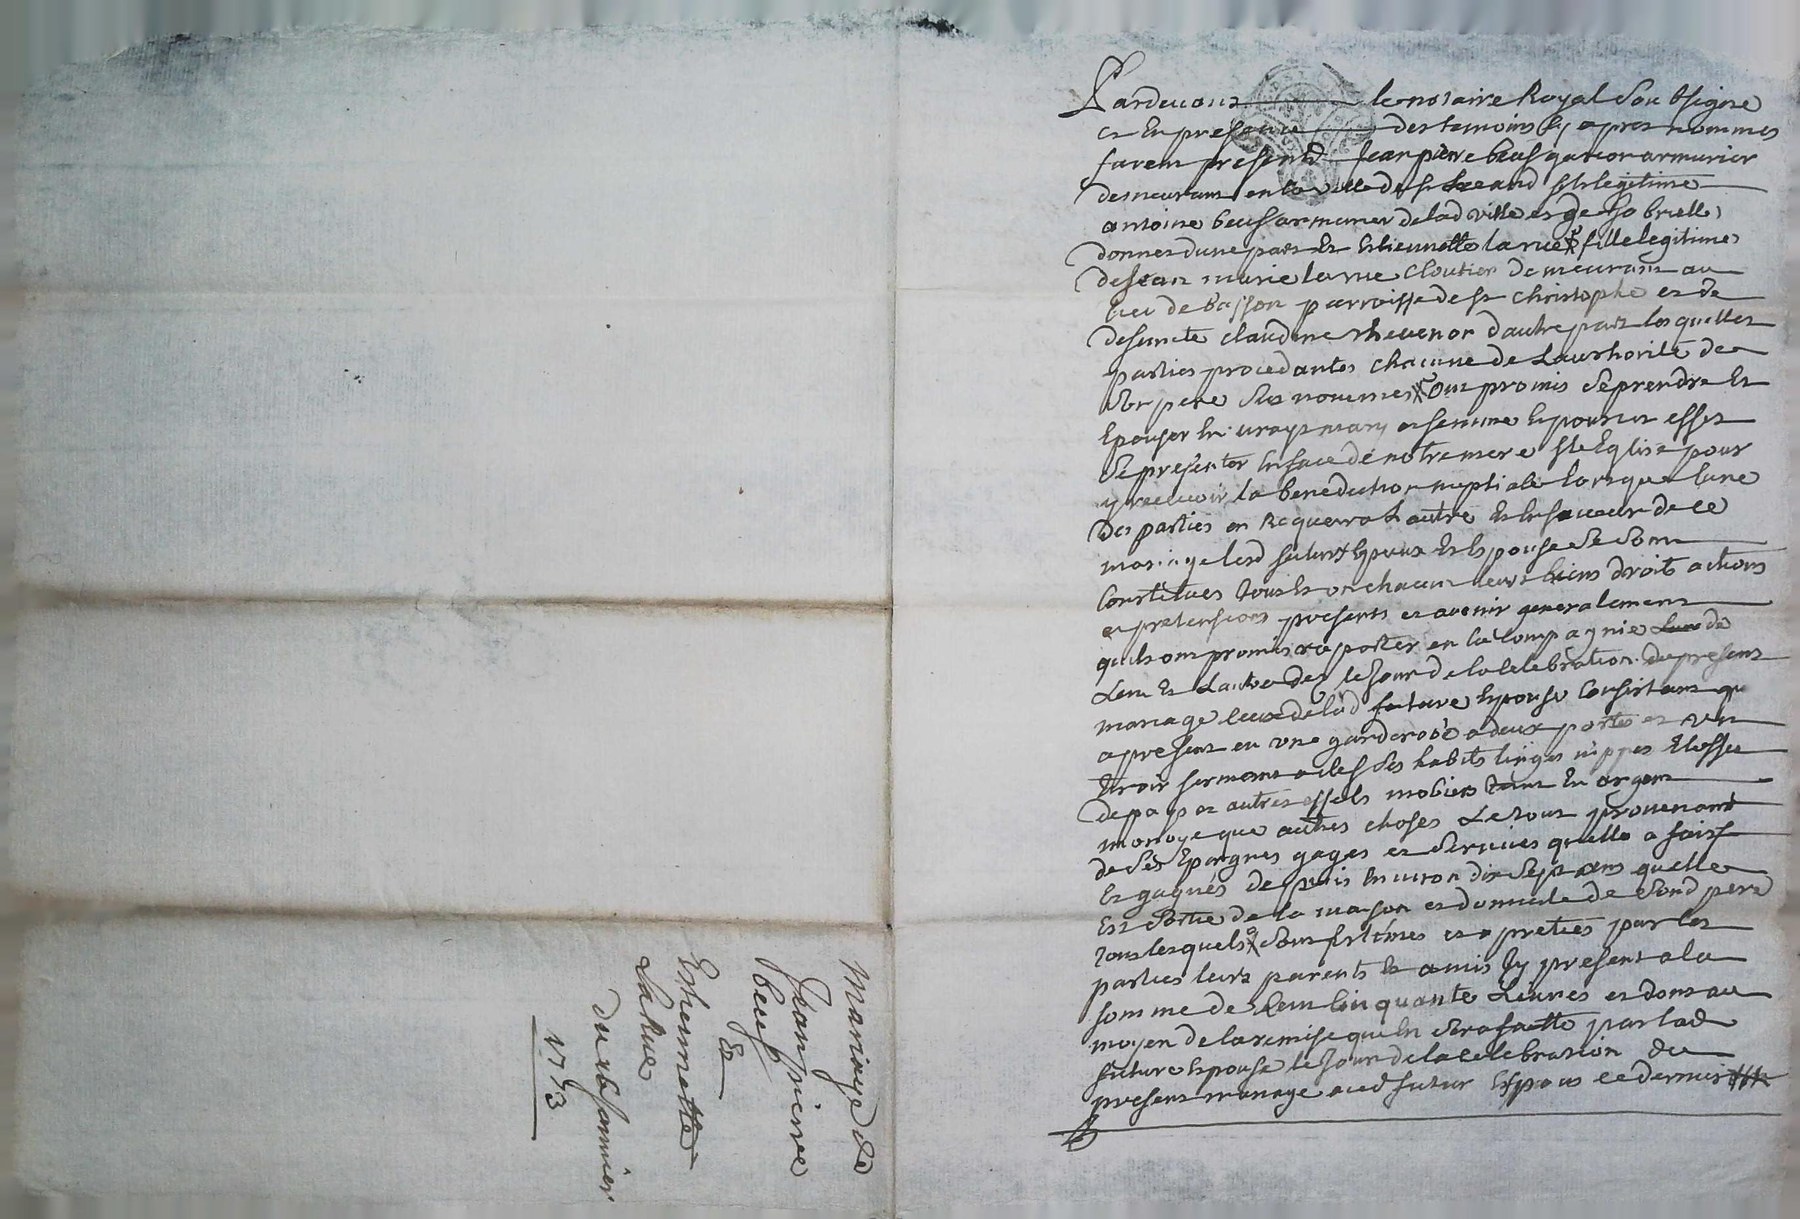 Mariage de
Jean pierre
beuf
Et
Estiennette
Larue
du 18 janvier
1753
Pardevant le notaire Royal Soubsigne
et En presence des temoins Cy apres nommes
furent presents Jean pierre beuf garcon armurier
demeurant en la ville de st fils legitime
antoine beuf armurier de lad ville et de gabrielle
donner dune part Et Estiennette larue fille legitime
de Jean marie larue Cloutier demeurant au
lieu de basson parroisse de st christophe et de
defuncte claudine thevenon dautre part lesquelles
parties procedantes chacune de Lauthorité de
Son pere Sus nommes Ont promis Se prendre Et
Epouser En vrays mary et femme Et pour cet effet
Se presenter En face de notre mere ste Eglise pour
y recevoir la benediction nuptiale lorsque lune
Des parties en Requerra Lautre Et En faveur de ce
mariage lesd futurs Epoux Et Epouse Se Sont
Constitues tous Et un chacun leurs biens droits actions
et pretensions presents et avenir generalement
quils ont promis raporter en la Compagnie de
Lun Et Lautre des le Jour de la Celebration du present
mariage Ceux de lad future Epouse Consistant qu
a present en une garderobe a deux portes et un
tiroir fermant a clef Ses habits linges nippes Etoffes
de pays et autres effets mobiers tant En argent
monoye que autres choses Le tout provenant
de Ses Epargnes gages et Services quelle a faits
Et gagnés depuis Environ dix Sept ans quelle
Est Sortie de la maison et domicile de Sond pere
tous lesquels Sont Estimes et apretiés par les
parties leurs parents Et amis Cy present a la
somme de Cent Cinquante Livres et dont au
moyen de la remise qui En Sera faitte par lad
future Epouse le Jour de la Celebration du
present mariage aud futur Espoux ce dernier